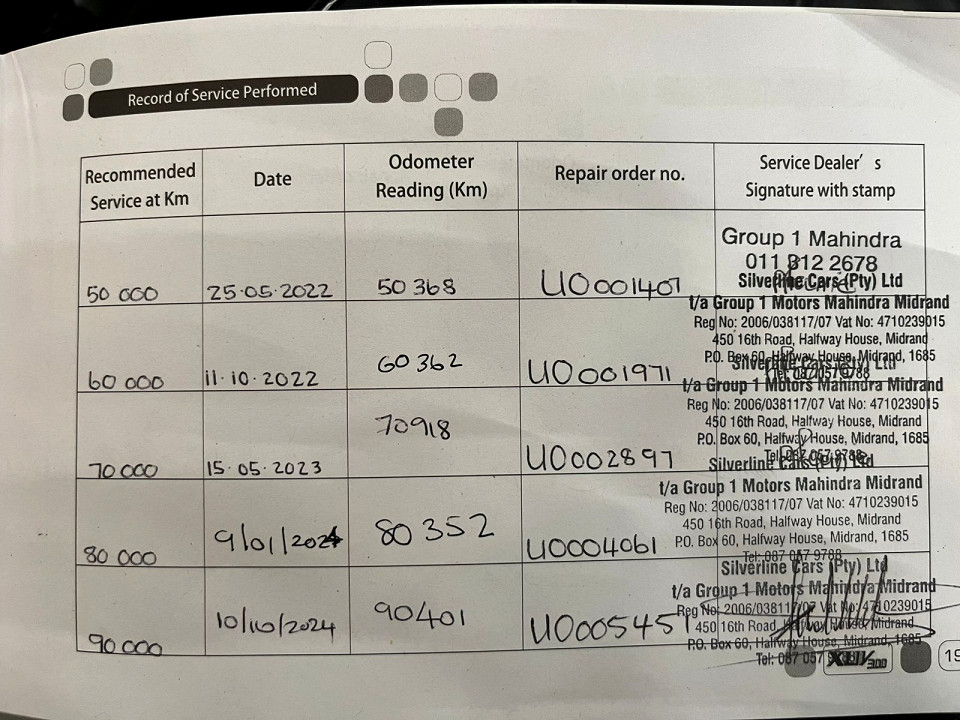 Record of Service Performed
Recommended Service at Km
Date
Odometer Reading (Km)
Repair order no.
Service Dealer's Signature with stamp
50 000 25.05.2022 50 368 U0001407
Group 1 Mahindra
011 312 2678
Silverline Cars (Pty) Ltd
t/a Group 1 Motors Mahindra Midrand
Reg No: 2006/038117/07 Vat No: 4710239015
450 16th Road, Halfway House, Midrand
P.O. Box 60, Halfway House, Midrand, 1685
60 000 11.10.2022 60 362 U0001971
Silverline Cars (Pty) Ltd
t/a Group 1 Motors Mahindra Midrand
Reg No: 2006/038117/07 Vat No: 4710239015
450 16th Road, Halfway House, Midrand
P.O. Box 60, Halfway House, Midrand, 1685
Tel: 087 057 9788
70 000 15.05.2023 70918 U0002897
Silverline Cars (Pty) Ltd
t/a Group 1 Motors Mahindra Midrand
Reg No: 2006/038117/07 Vat No: 4710239015
450 16th Road, Halfway House, Midrand
P.O. Box 60, Halfway House, Midrand, 1685
Tel: 087 057 9788
80 000 9/01/2024 80 352 U0004061
Silverline Cars (Pty) Ltd
t/a Group 1 Motors Mahindra Midrand
Reg No: 2006/038117/07 Vat No: 4710239015
450 16th Road, Halfway House, Midrand
P.O. Box 60, Halfway House, Midrand, 1685
Tel: 087 057
90 000 10/10/2024 90401 U000545
XUV300
19